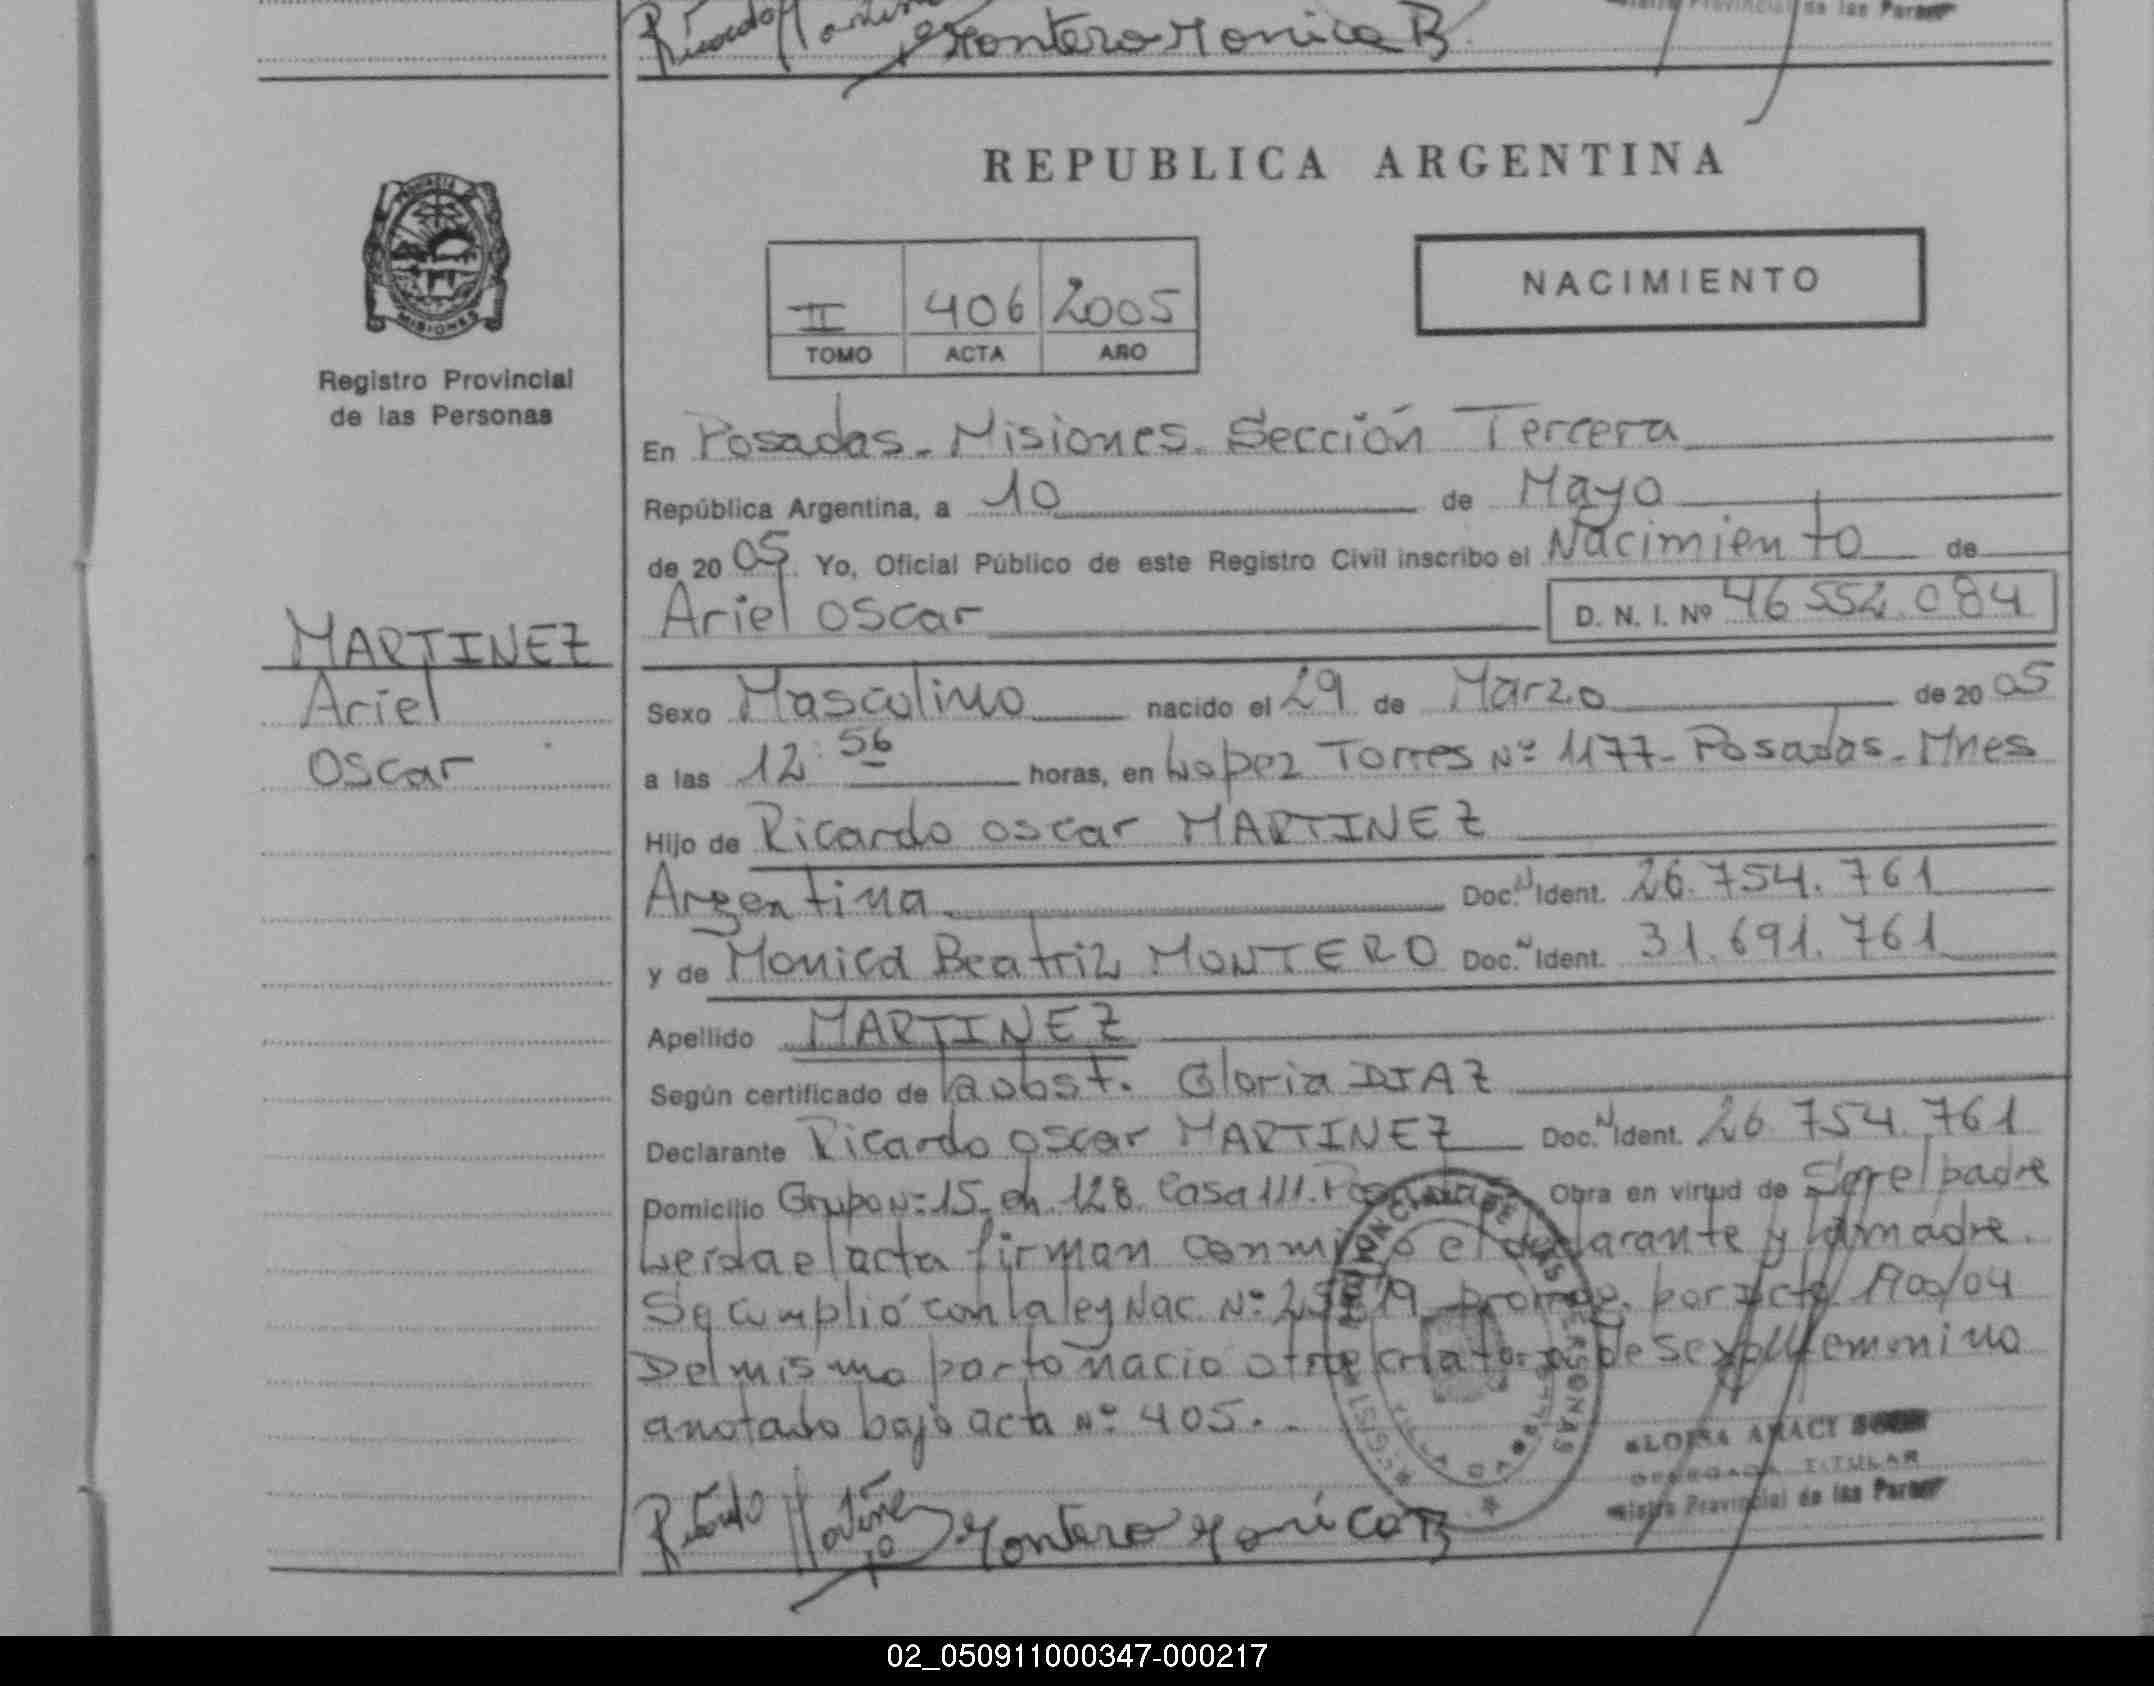 Montero Monica B
REPUBLICA ARGENTINA
PROVINCIA
MISIONES
Registro Provincial
de las Personas
II 406 2005
TOMO ACTA AÑO
NACIMIENTO
En Posadas - Misiones. Sección Tercera
República Argentina, a 10 de Mayo
de 20 05. Yo, Oficial Público de este Registro Civil inscribo el Nacimiento de
Ariel Oscar D. N. I. Nº 46 552.084
MARTINEZ
Ariel
Oscar
Sexo Masculino nacido el 29 de Marzo de 20 05
a las 12:56 horas, en Lopez Torres Nº 1177 - Posadas - Mnes
Hijo de Ricardo Oscar MARTINEZ
Argentina Doc. N Ident. 26.754.761
y de Monica Beatriz MONTERO Doc. N Ident. 31.691.761
Apellido MARTINEZ
Según certificado de la obst. Gloria DIAZ
Declarante Ricardo Oscar MARTINEZ Doc. N Ident. 26 754.761
Domicilio Grupo Nº 15. ch. 128. Casa 111. Posadas Obra en virtud de Ser el padre
Leida el acta firman conmigo el declarante y la madre.
Se cumplió con la ley Nac. Nº por 1900/04
Del mismo parto nació otra criatura de sexo femenino
anotado bajo acta Nº 405.
DELEGADA TITULAR
Provincial de las
Ricardo Martinez Montero Monica B
02_050911000347-000217